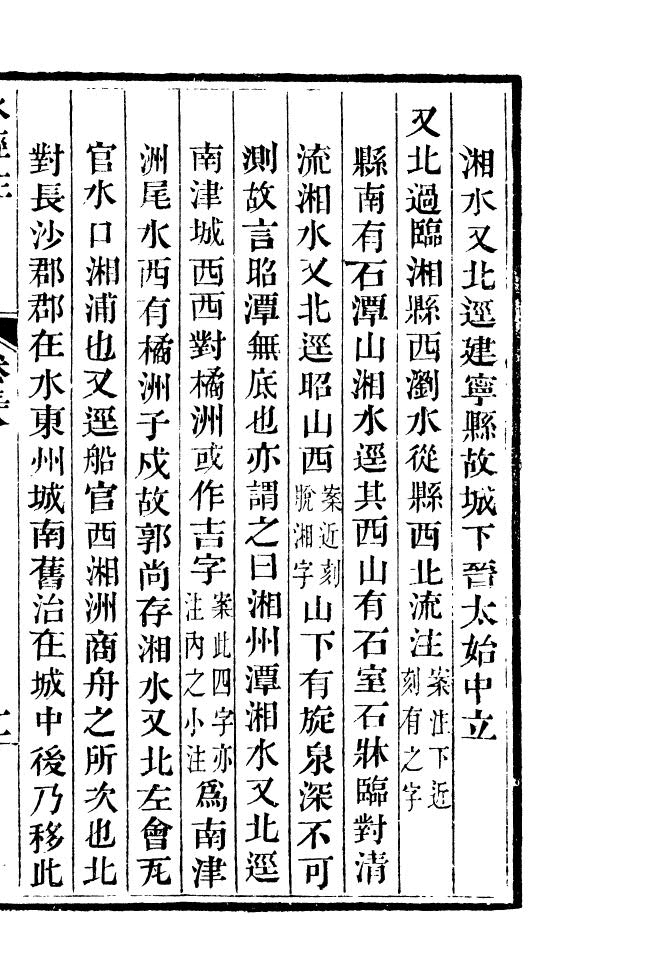 湘水又北逕建寧縣故城下晉太始中立
又北過臨湘縣西瀏水從縣西北流注案注下近刻有之字
縣南有石潭山湘水逕其西山有石室石牀臨對清
流湘水又北逕昭山西案近刻脫湘字山下有旋泉深不可
測故言昭潭無底也亦謂之曰湘州潭湘水又北逕
南津城西西對橘洲或作吉字案此四字亦注內之小注為南津
洲尾水西有橘洲子戍故郭尚存湘水又北左會瓦
官水口湘浦也又逕船官西湘洲商舟之所次也北
對長沙郡郡在水東州城南舊治在城中後乃移此